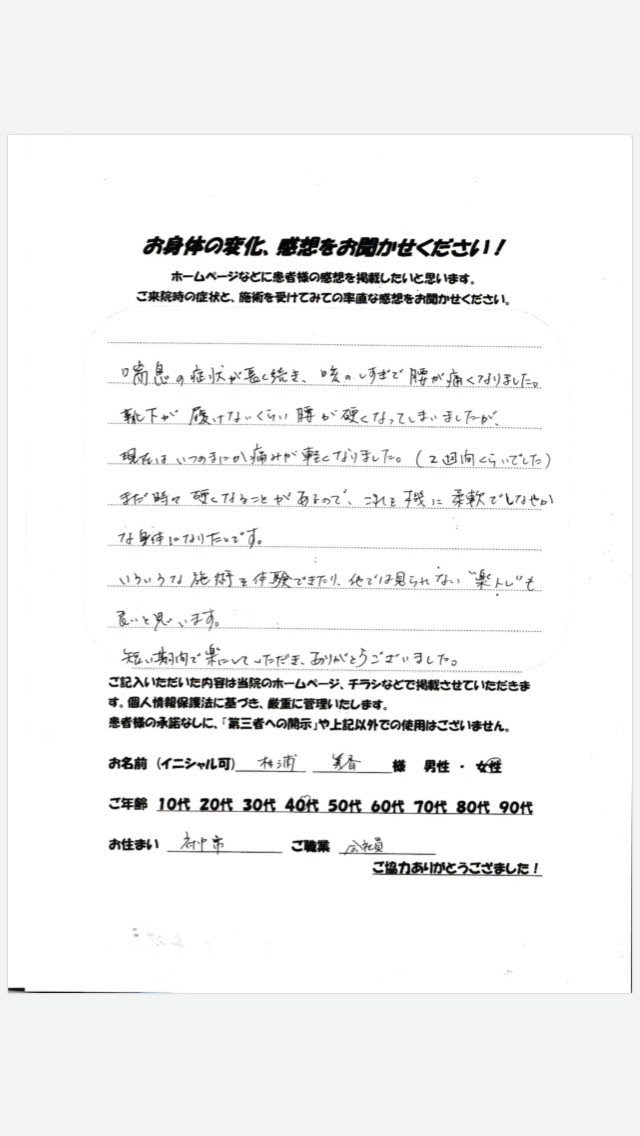 お身体の変化、感想をお聞かせください!
ホームページなどに患者様の感想を掲載したいと思います。
ご来院時の症状と、施術を受けてみての率直な感想をお聞かせください。
喘息の症状が長く続き、咳のしすぎで腰が痛くなりました。
靴下が履けないくらい腰が硬くなってしまいましたが、
現在はいつのまにか痛みが軽くなりました。(2週間くらいでした)
まだ時々硬くなることがあるので、これを機に柔軟でしなやか
な身体になりたいです。
いろいろな施術を体験できたり、他では見られない"楽トレ"も
良いと思います。
短い期間で楽にしていただき、ありがとうございました。
ご記入いただいた内容は当院のホームページ、チラシなどで掲載させていただきま
す。個人情報保護法に基づき、厳重に管理いたします。
患者様の承諾なしに、「第三者への開示」や上記以外での使用はございません。
お名前(イニシャル可) 杉浦 美香 様 男性・女性
ご年齢 10代 20代 30代 40代 50代 60代 70代 80代 90代
お住まい 府中市 ご職業 会社員
ご協力ありがとうござました!